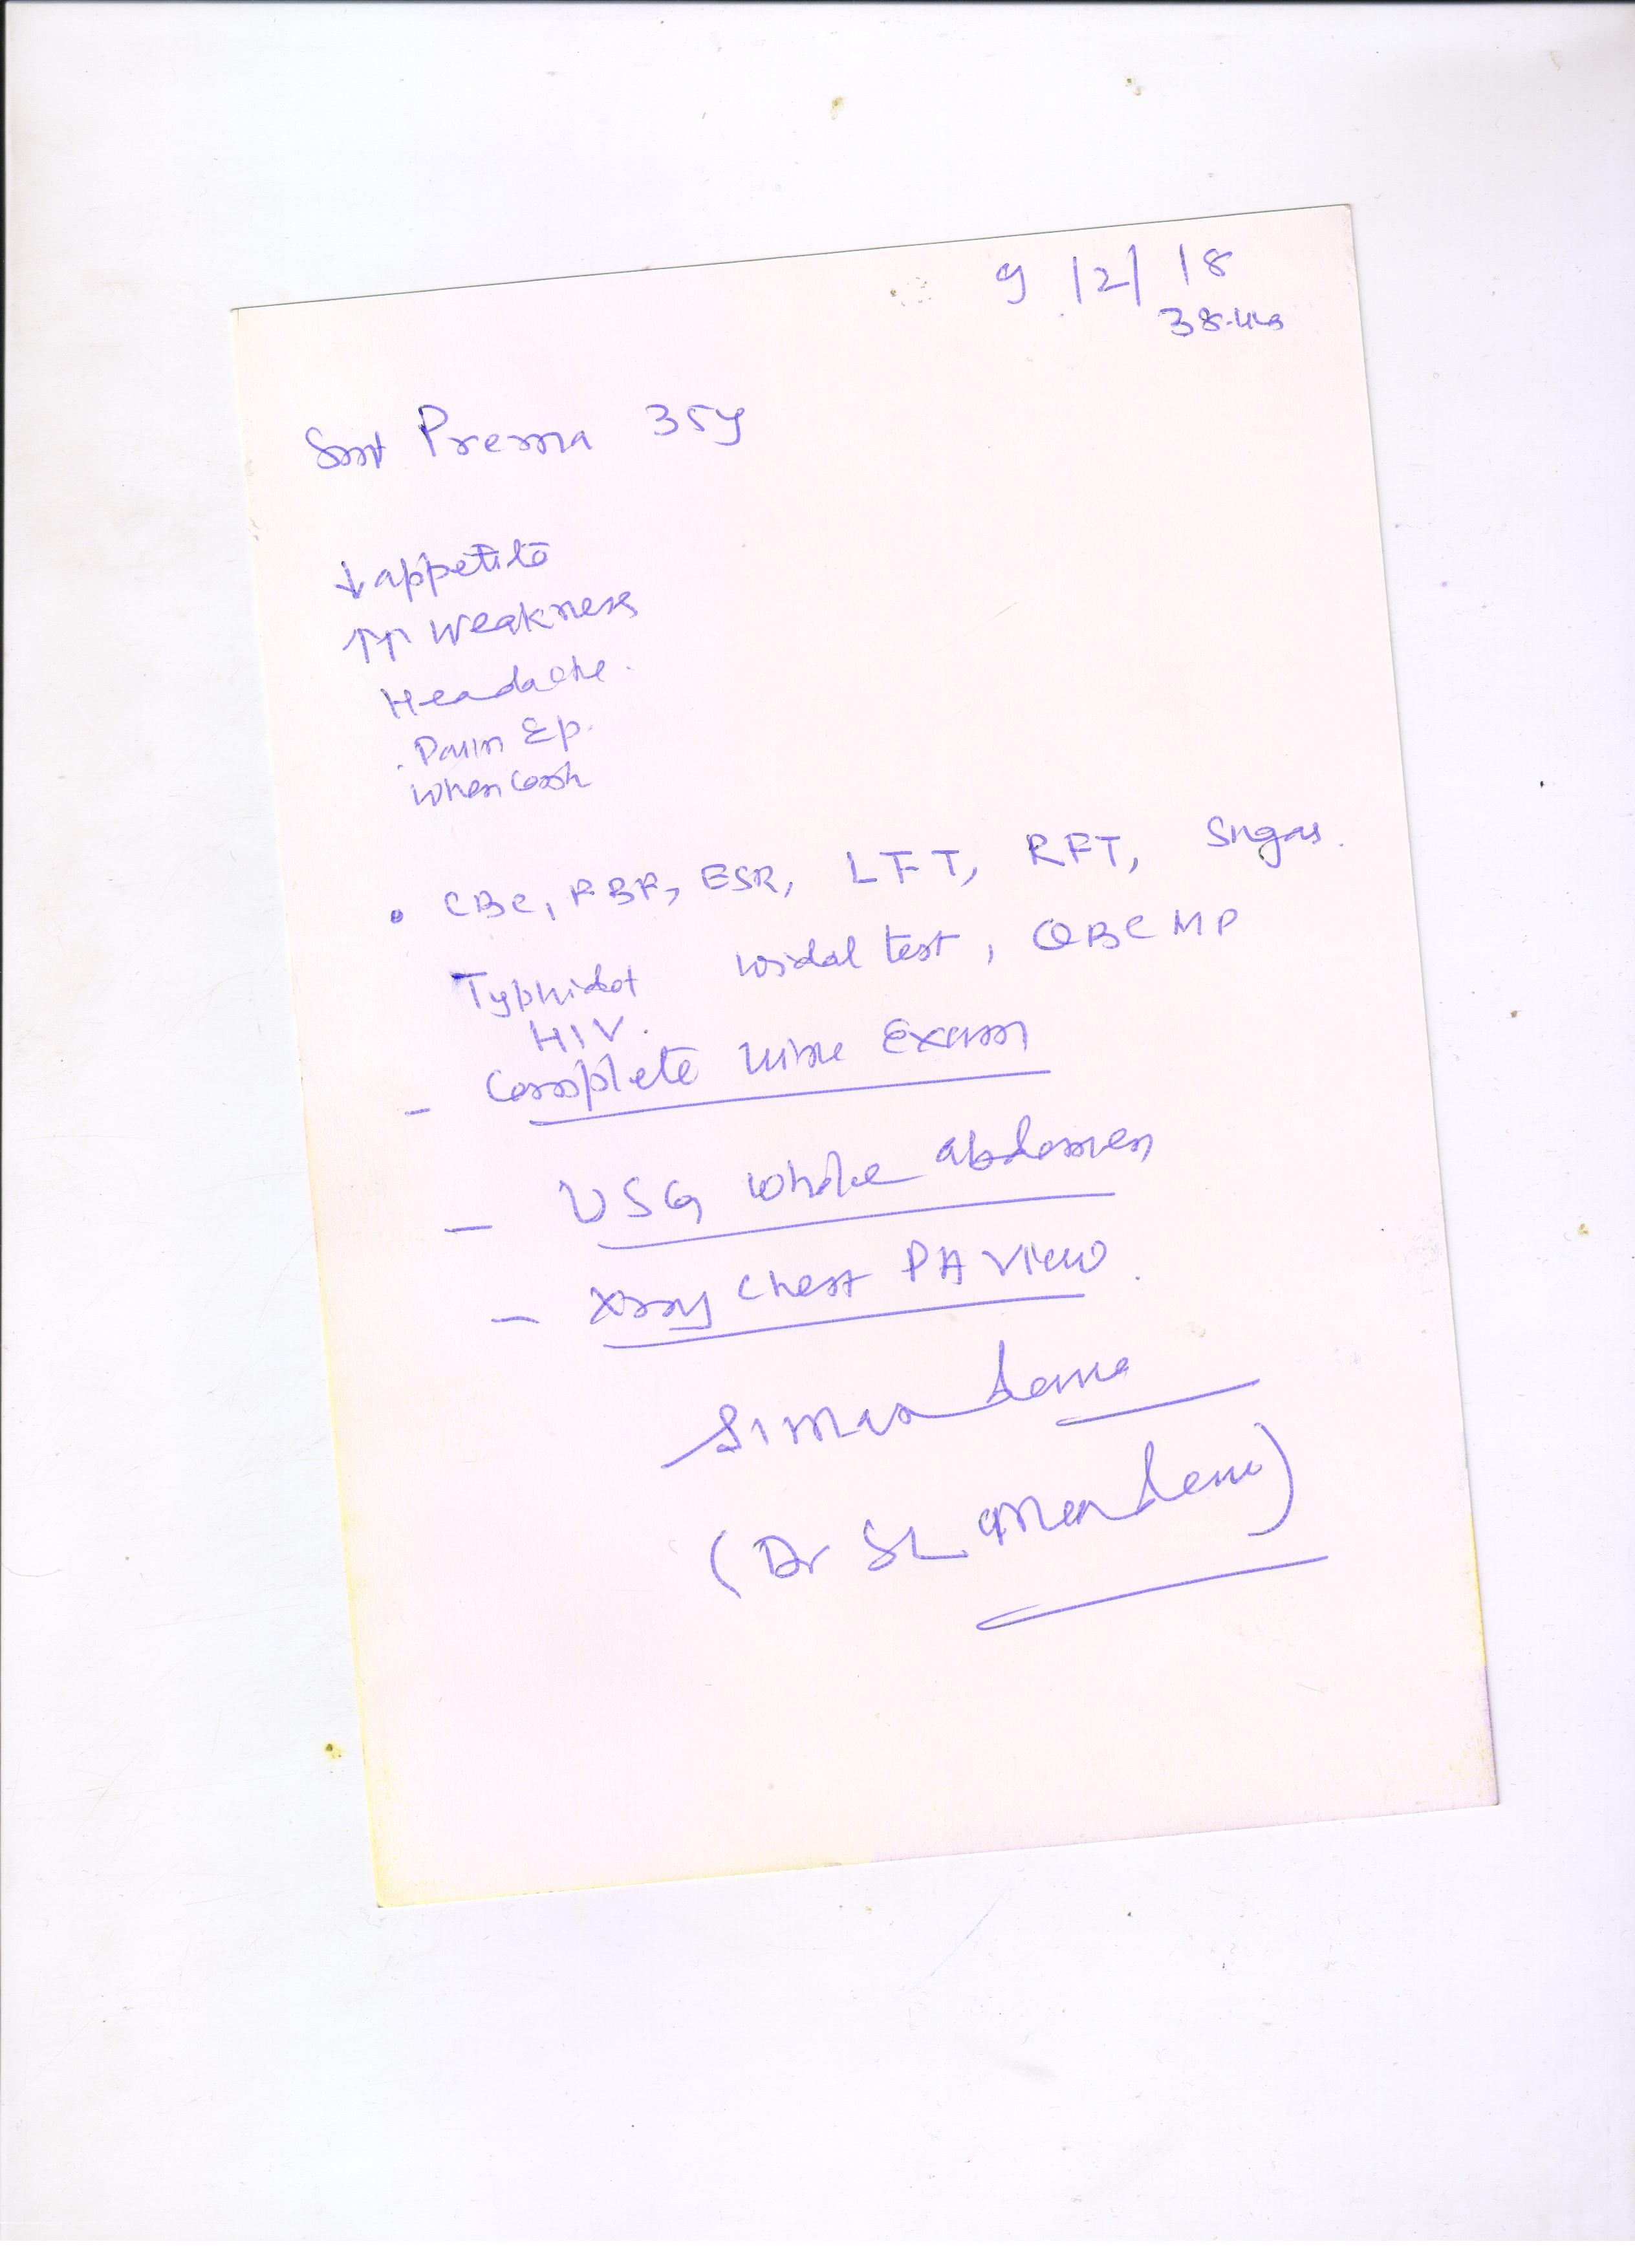 9/12/18
38.4
Smt Prema 35y
↓ appetite
↑↑ Weakness
Headache.
. Pain Ep.
When
• CBC, PBF, ESR, LFT, RFT, Sugar.
Typhidot widal test, QBC MP
HIV.
- Complete urine Exam
- USG whole abdomen
- Xray Chest PA view.
(Dr SL